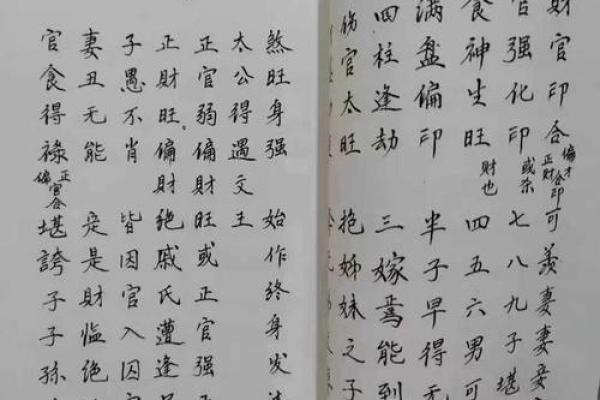 财官印合可羡妻妻妾
偏才
正财合印
官强化印 七八九子堪
或杀
食神生旺 四五六男可
财也
满盘偏印 半子早得无
四柱逢劫 三嫁焉能到
伤官太旺 抱姊妹之子
煞旺身强 始作终身发
太公得遇文王
正官弱偏财旺或正官强
正财旺。偏财绝戚氏遭逢
子愚不肖 皆因官入囚
妻丑无能 定是财临绝
官食得禄 堪誇子子孙
正官合
偏